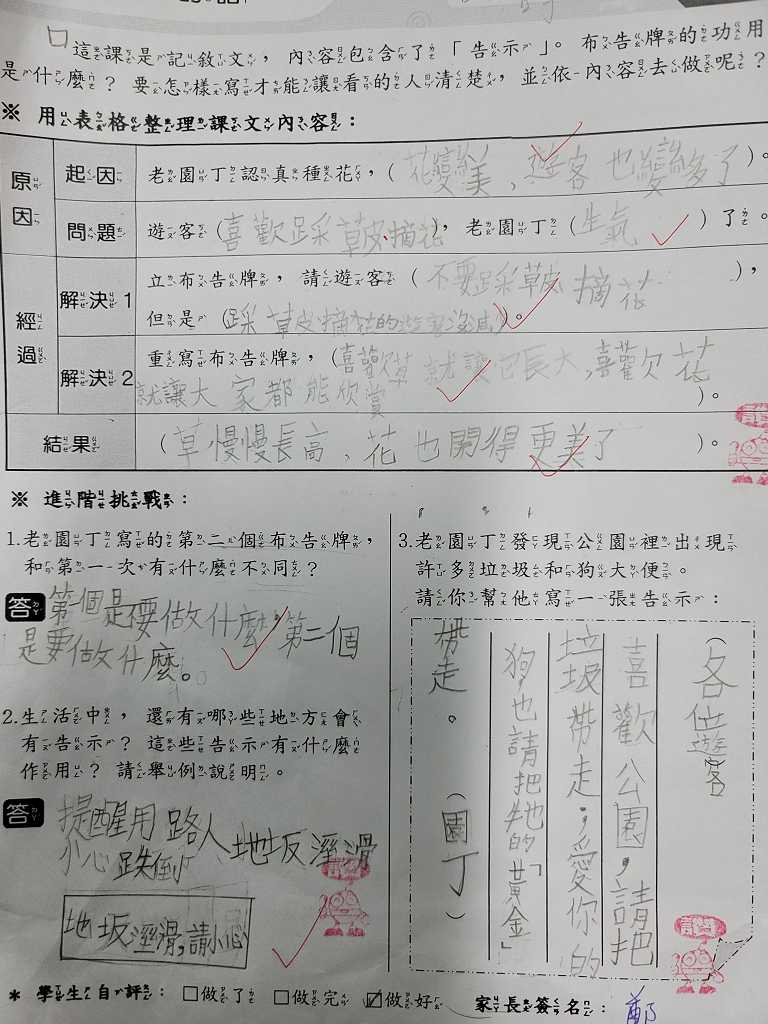 □這課是記敘文，內容包含了「告示」。布告牌的功用
是什麼？要怎樣寫才能讓看的人清楚，並依內容去做呢？
※ 用表格整理課文內容：
原因 起因 老園丁認真種花，（花變美，遊客也變多了）。
問題 遊客（喜歡踩草皮、摘花），老園丁（生氣）了。
經過 解決1 立布告牌，請遊客（不要踩草皮 摘花），
但是（踩草皮、摘花的遊客沒減）。
解決2 重寫布告牌，（喜歡草 就讓它長大，喜歡花
就讓大家都能欣賞）。
結果（草慢慢長高、花也開得更美了）。
※ 進階挑戰：
1.老園丁寫的第二個布告牌，
和第一次有什麼不同？
答 第一個是不要做什麼，第二個
是要做什麼。
2.生活中，還有哪些地方會
有告示？這些告示有什麼
作用？請舉例說明。
答 提醒用路人地坂溼滑
小心跌倒
地坂溼滑，請小心
3.老園丁發現公園裡出現
許多垃圾和狗大便。
請你幫他寫一張告示：
（各位遊客
喜歡公園，請把
垃圾帶走，愛你的
狗，也請把牠的「黃金」
帶走。（園丁）
* 學生自評：□做了 □做完 ☑做好 家長簽名：鄭